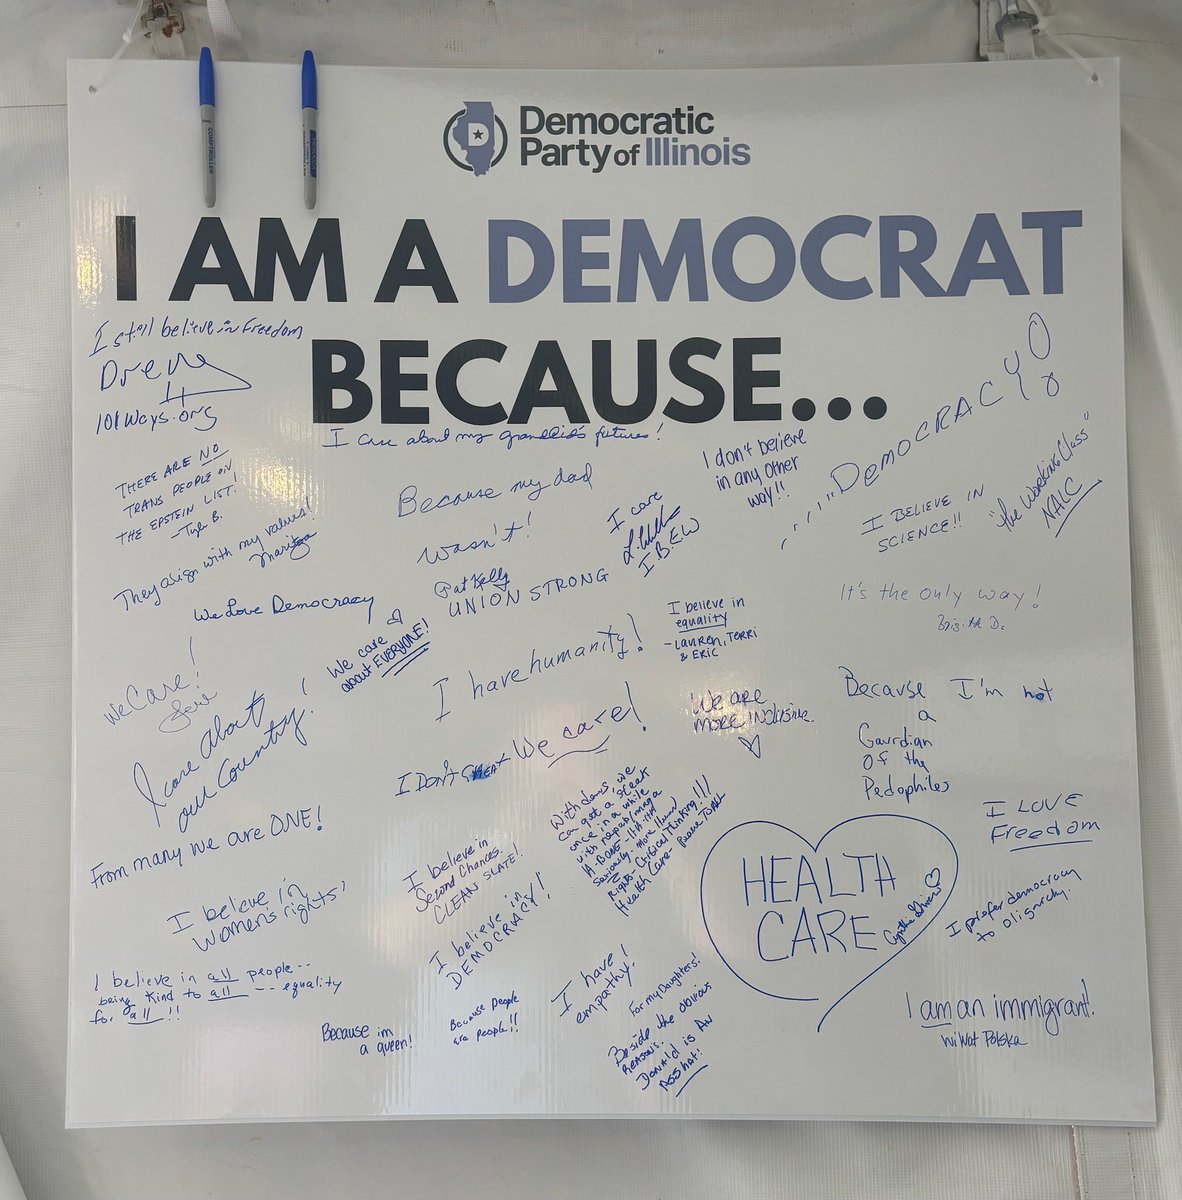 Democratic
Party of Illinois
I AM A DEMOCRAT
BECAUSE...
I still believe in Freedom
101Ways.org
I care about my grandkid's futures!
THERE ARE NO
TRANS PEOPLE ON
THE EPSTEIN LIST!
-Tyler B.
They align with my values!
Maritza
We Love Democracy
Because my dad
wasn't!
Pat Kelly
UNION STRONG
I care
I.B.E.W
I don't believe
in any other
way!!
DEMOCRACY
I BELIEVE IN
SCIENCE!!
"the Working Class"
NALC
It's the only way!
We care
about EVERYONE!
I believe in
equality
- LAUREN, TERRI
& ERIC
I have humanity!
We Care!
I care About
our Country!
We are
more inclusive.
Because I'm not
a
Gaurdian
of the
Pedophiles
I Don't CHEAT
We care!
With dems, we
can get a steak
once in a while
with repub/maga
A-BONE-
Seriously- More Human
Rights- Critical Thinking!!!
Health Care- Peace TO ALL
I LOVE
Freedom
From many we are ONE!
I believe in
Second Chances.
CLEAN SLATE!
HEALTH
CARE
I prefer democracy
to oligarchy.
I believe in
Women's rights'
I believe in
DEMOCRACY!
I believe in all people--
being kind to all --- equality
for all!!
I have!
empathy.
For my Daughters!
Because im
a queen!
Because people
are people!!
Beside the obvious
REASONS.
Donald is AN
ASSHAT!
I am an immigrant!
Wiwat Polska